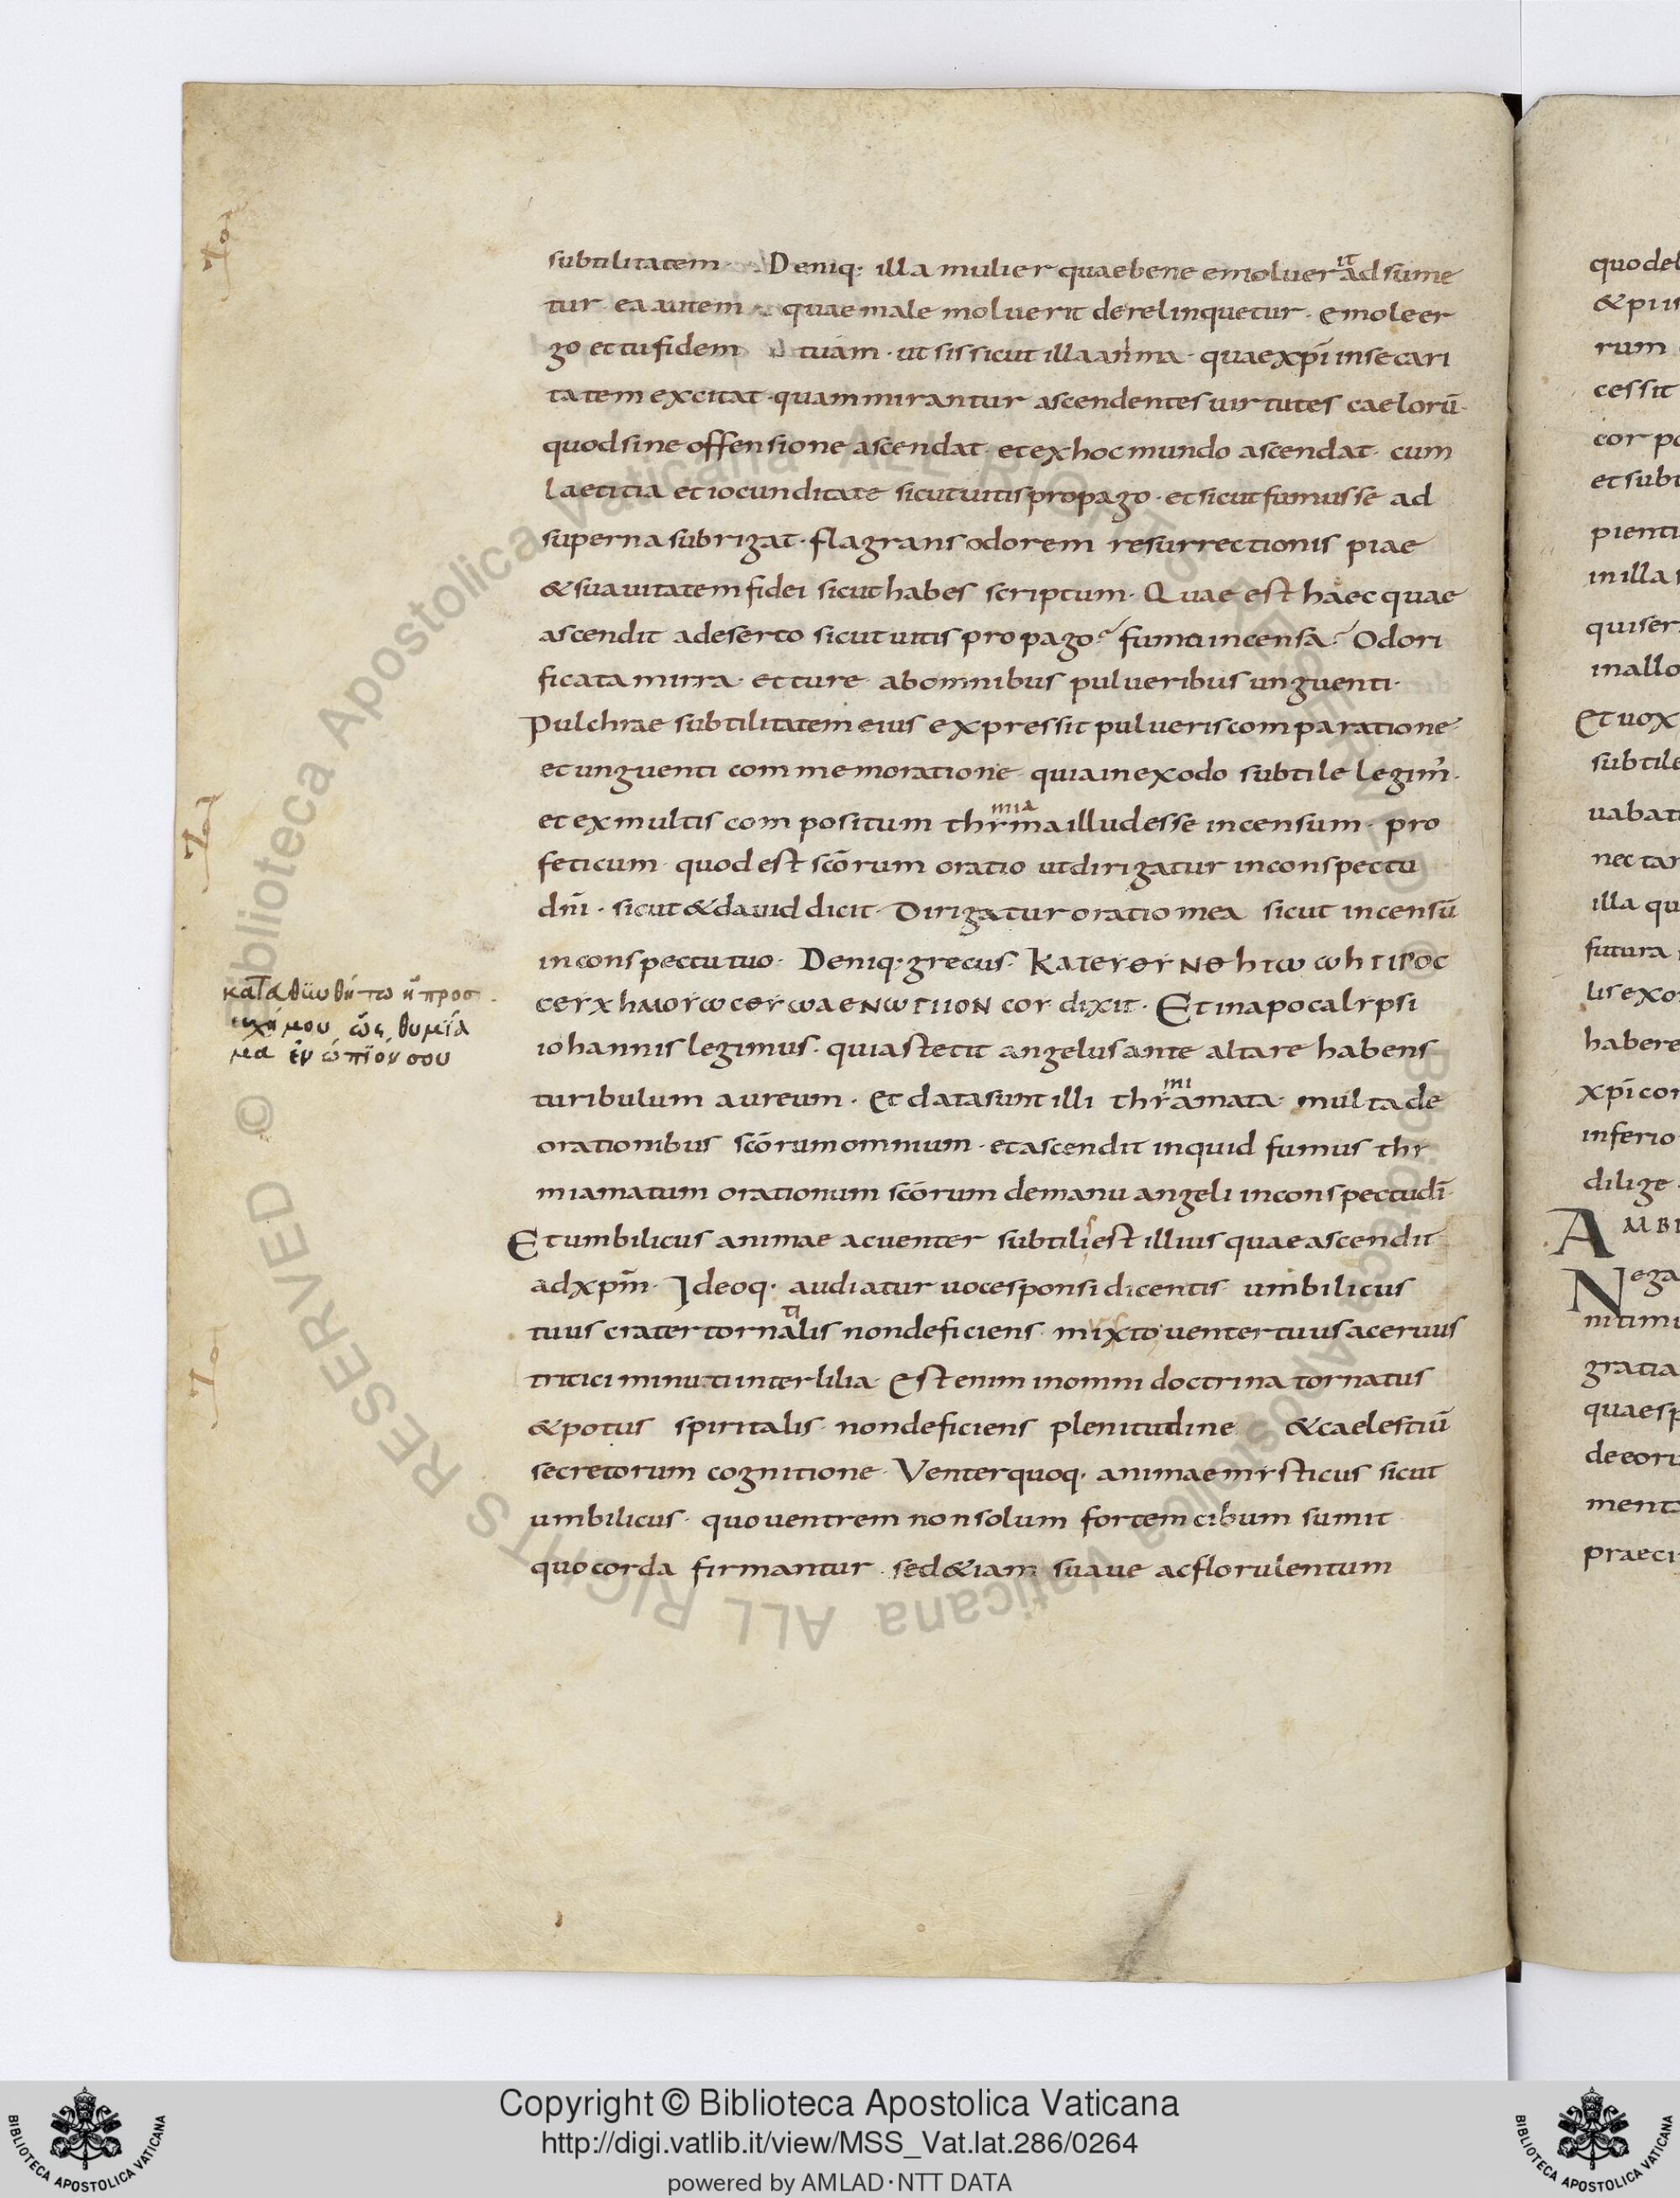 subtilitatem · Deniq· illa mulier quae bene emoluerit adsume
tur · ea autem quae male moluerit derelinquetur · emole er
go et tu fidem tuam · ut sis sicut illa anima · quae xpi in se cari
tatem excitat · quam mirantur ascendentes uirtutes caelorū ·
quod sine offensione ascendat · et ex hoc mundo ascendat · cum
laetitia et iocunditate sicut uitis propago · et sicut fumus se ad
superna subrigat · flagrans odorem resurrectionis piae
& suauitatem fidei sicut habes scriptum · Quae est haec quae
ascendit a deserto sicut uitis propago fumo incensa Odori
ficata mirra · et ture ab omnibus pulueribus unguenti ·
Pulchrae subtilitatem eius expressit pulueris comparatione
et unguenti commemoratione quia in exodo subtile legim' ·
et ex multis compositum thymiama illud esse incensum · pro
feticum · quod est scōrum oratio ut dirigatur in conspectu
dn̄i · sicut & dauid dicit · Dirigatur oratio mea sicut incensū
in conspectu tuo · Deniq· grecus · KATEYΘYNΘHTω ωHΠPOC
CEYXHMOYωCΘYωAENωΠION COY dixit · Et in apocalypsi
iohannis legimus · quia stetit angelus ante altare habens
turibulum aureum · et data sunt illi thymiamata · multa de
orationibus scōrum omnium · et ascendit inquid fumus thy
miamatum orationum scōrum de manu angeli in conspectu dī ·
Et umbilicus animae ac uenter subtilis est illius quae ascendit
ad xpm̄ · Ideoq· audiatur uoce sponsi dicentis · umbilicus
tuus crater tornatilis non deficiens · mixto uenter tuus aceruus
tritici minuti inter lilia · Est enim in omni doctrina tornatus
& potus spiritalis · non deficiens plenitudine & caelestiū
secretorum cognitione · Venter quoq· animae mysticus sicut
umbilicus · quo uentrem non solum fortem cibum sumit
quo corda firmantur · sed &iam suaue ac florulentum
κατευθυνθήτω ἡ προσ
ευχή μου ὡς θυμία
μα ἐνώπϊόν σου
quo de
& piis
rum
cessit
cor po
et subt
pienti
in illa
qui ser
in allo
Et uox
subtile
uabat
nec tar
illa qu
futura
lis exo
habere
xpi cor
inferio
dilige
AMBI
Nega
nitimu
gratia
quae sp
de eoru
ment
praeci
© Biblioteca Apostolica Vaticana ALL RIGHTS RESERVED © Biblioteca Apostolica Vaticana ALL RIGHTS RESERVED
Copyright © Biblioteca Apostolica Vaticana
http://digi.vatlib.it/view/MSS_Vat.lat.286/0264
powered by AMLAD·NTT DATA
BIBLIOTECA APOSTOLICA VATICANA
BIBLIOTECA APOSTOLICA VATICANA